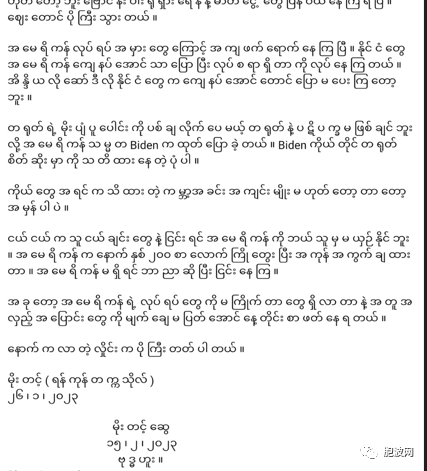 ဈေး တောင် ပို ကြီး သွား တယ် ။
အ မေ ရိ ကန် လုပ် ရပ် အ မှား တွေ ကြောင့် အ ကျ ဖက် ရောက် နေ ကြ ပြီ ။ နိုင် ငံ တွေ
အ မေ ရိ ကန် ကျေ နပ် အောင် သာ ပြော ပြီး လုပ် စ ရာ ရှိ တာ ကို လုပ် နေ ကြ တယ် ။
အိ န္ဒိ ယ လို ဆော် ဒီ လို နိုင် ငံ တွေ က ကျေ နပ် အောင် တောင် ပြော မ ပေး ကြ တော့
ဘူး ။
တ ရုတ် ရဲ့ မိုး ပျံ ပူ ပေါင်း ကို ပစ် ချ လိုက် ပေ မယ့် တ ရုတ် နဲ့ ပ ဋိ ပ က္ခ မ ဖြစ် ချင် ဘူး
လို့ အ မေ ရိ ကန် သ မ္မ တ Biden က ထုတ် ပြော ခဲ့ တယ် ။ Biden ကိုယ် တိုင် တ ရုတ်
စိတ် ဆိုး မှာ ကို သ တိ ထား နေ တဲ့ ပုံ ပါ ။
ကိုယ် တွေ အ ရင် က သိ ထား တဲ့ က မ္ဘာ့အ ခင်း အ ကျင်း မျိုး မ ဟုတ် တော့ တာ တော့
အ မှန် ပါ ပဲ ။
ငယ် ငယ် က သူ ငယ် ချင်း တွေ နဲ့ ငြင်း ရင် အ မေ ရိ ကန် ကို ဘယ် သူ မှ မ ယှဉ် နိုင် ဘူး
။ အ မေ ရိ ကန် က နောက် နှစ် ၂၀၀ စာ လောက် ကြို တွေး ပြီး အ ကုန် အ ကွက် ချ ထား
တာ ။ အ မေ ရိ ကန် မ ရှိ ရင် ဘာ ညာ ဆို ပြီး ငြင်း နေ ကြ ။
အ ခု တော့ အ မေ ရိ ကန် ရဲ့ လုပ် ရပ် တွေ ကို မ ကြိုက် တာ တွေ ရှိ လာ တာ နဲ့ အ တူ အ
လှည့် အ ပြောင်း တွေ ကို မျက် ခြေ မ ပြတ် အောင် နေ့ တိုင်း စာ ဖတ် နေ ရ တယ် ။
နောက် က လာ တဲ့ လှိုင်း က ပို ကြီး တတ် ပါ တယ် ။
မိုး တင့် ( ရန် ကုန် တ က္က သိုလ် )
၂၆ ၊ ၁ ၊ ၂၀၂၃
မိုး တင့် ဆွေ
၁၅ ၊ ၂ ၊ ၂၀၂၃
ဗု ဒ္ဓ ဟူး ။
胞波网